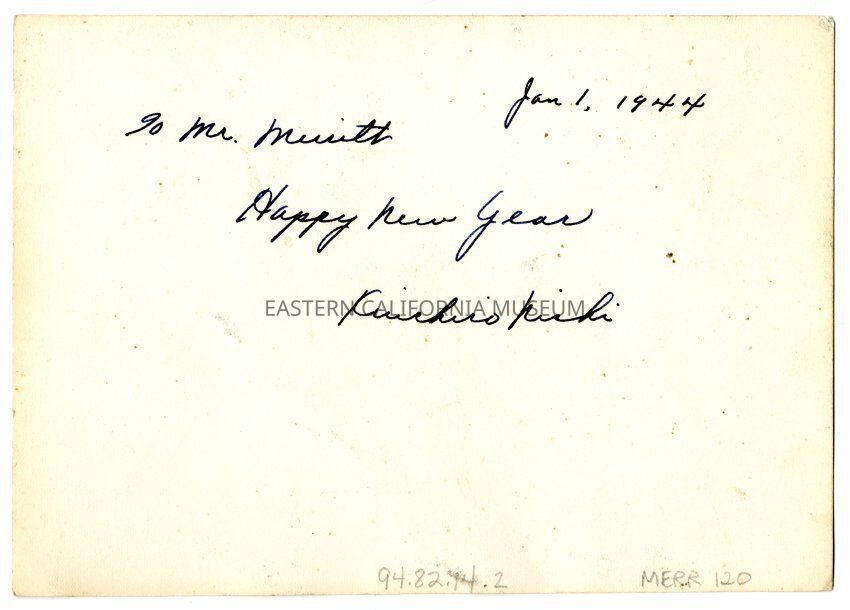 Jan 1, 1944
To Mr. Merritt
Happy New Year
Kuichiro Nishi
EASTERN CALIFORNIA MUSEUM
94.82.14.2
MERR 120